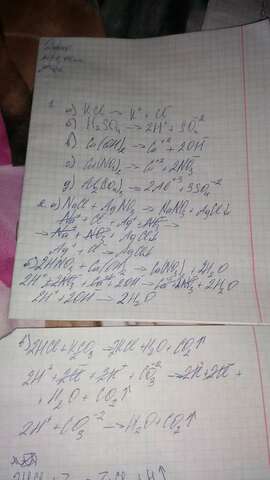 1.
а) KCl → K⁺ + Cl⁻
б) H₂SO₄ → 2H⁺ + SO₄⁻²
в) Ca(OH)₂ → Ca⁺² + 2OH⁻
г) Ca(NO₃)₂ → Ca⁺² + 2NO₃⁻
д) Al₂(SO₄)₃ → 2Al⁺³ + 3SO₄⁻²
2. а) NaCl + AgNO₃ → NaNO₃ + AgCl↓
Na⁺ + Cl⁻ + Ag⁺ + NO₃⁻ →
→ Na⁺ + NO₃⁻ + AgCl↓
Ag⁺ + Cl⁻ → AgCl↓
б) 2HNO₃ + Ca(OH)₂ → Ca(NO₃)₂ + 2H₂O
2H⁺ + 2NO₃⁻ + Ca⁺² + 2OH⁻ → Ca⁺² + 2NO₃⁻ + 2H₂O
2H⁺ + 2OH⁻ → 2H₂O
в) 2HCl + K₂CO₃ → 2KCl + H₂O + CO₂↑
2H⁺ + 2Cl⁻ + 2K⁺ + CO₃⁻² → 2K⁺ + 2Cl⁻ +
+ H₂O + CO₂↑
2H⁺ + CO₃⁻² → H₂O + CO₂↑